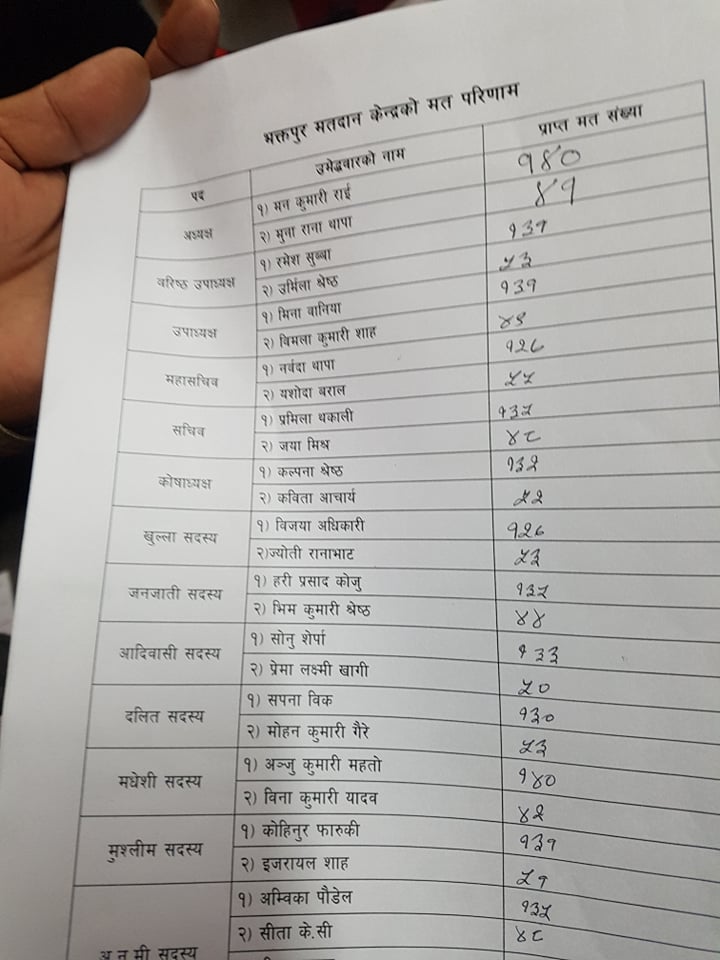 भक्तपुर मतदान केन्द्रको मत परिणाम
पद उमेद्धवारको नाम प्राप्त मत संख्या
अध्यक्ष
१) मन कुमारी राई १४०
२) मुना राना थापा ४१
वरिष्ठ उपाध्यक्ष
१) रमेश सुब्बा १३१
२) उर्मिला श्रेष्ठ ५३
उपाध्यक्ष
१) मिना वानिया १३१
२) विमला कुमारी शाह ४९
महासचिव
१) नर्वदा थापा १२६
२) यशोदा बराल ५५
सचिव
१) प्रमिला थकाली १३५
२) जया मिश्र ४८
कोषाध्यक्ष
१) कल्पना श्रेष्ठ १३२
२) कविता आचार्य ५२
खुल्ला सदस्य
१) विजया अधिकारी १२६
२)ज्योती रानाभाट ५३
जनजाती सदस्य
१) हरी प्रसाद कोजु १३५
२) भिम कुमारी श्रेष्ठ ४४
आदिवासी सदस्य
१) सोनु शेर्पा १३३
२) प्रेमा लक्ष्मी खागी ५०
दलित सदस्य
१) सपना विक १३०
२) मोहन कुमारी गैरे ५३
मधेशी सदस्य
१) अञ्जु कुमारी महतो १४०
२) विना कुमारी यादव ४२
मुश्लीम सदस्य
१) कोहिनुर फारुकी १३१
२) इजरायल शाह ५१
अ.न.मी सदस्य
१) अम्विका पौडेल १३५
२) सीता के.सी ४८